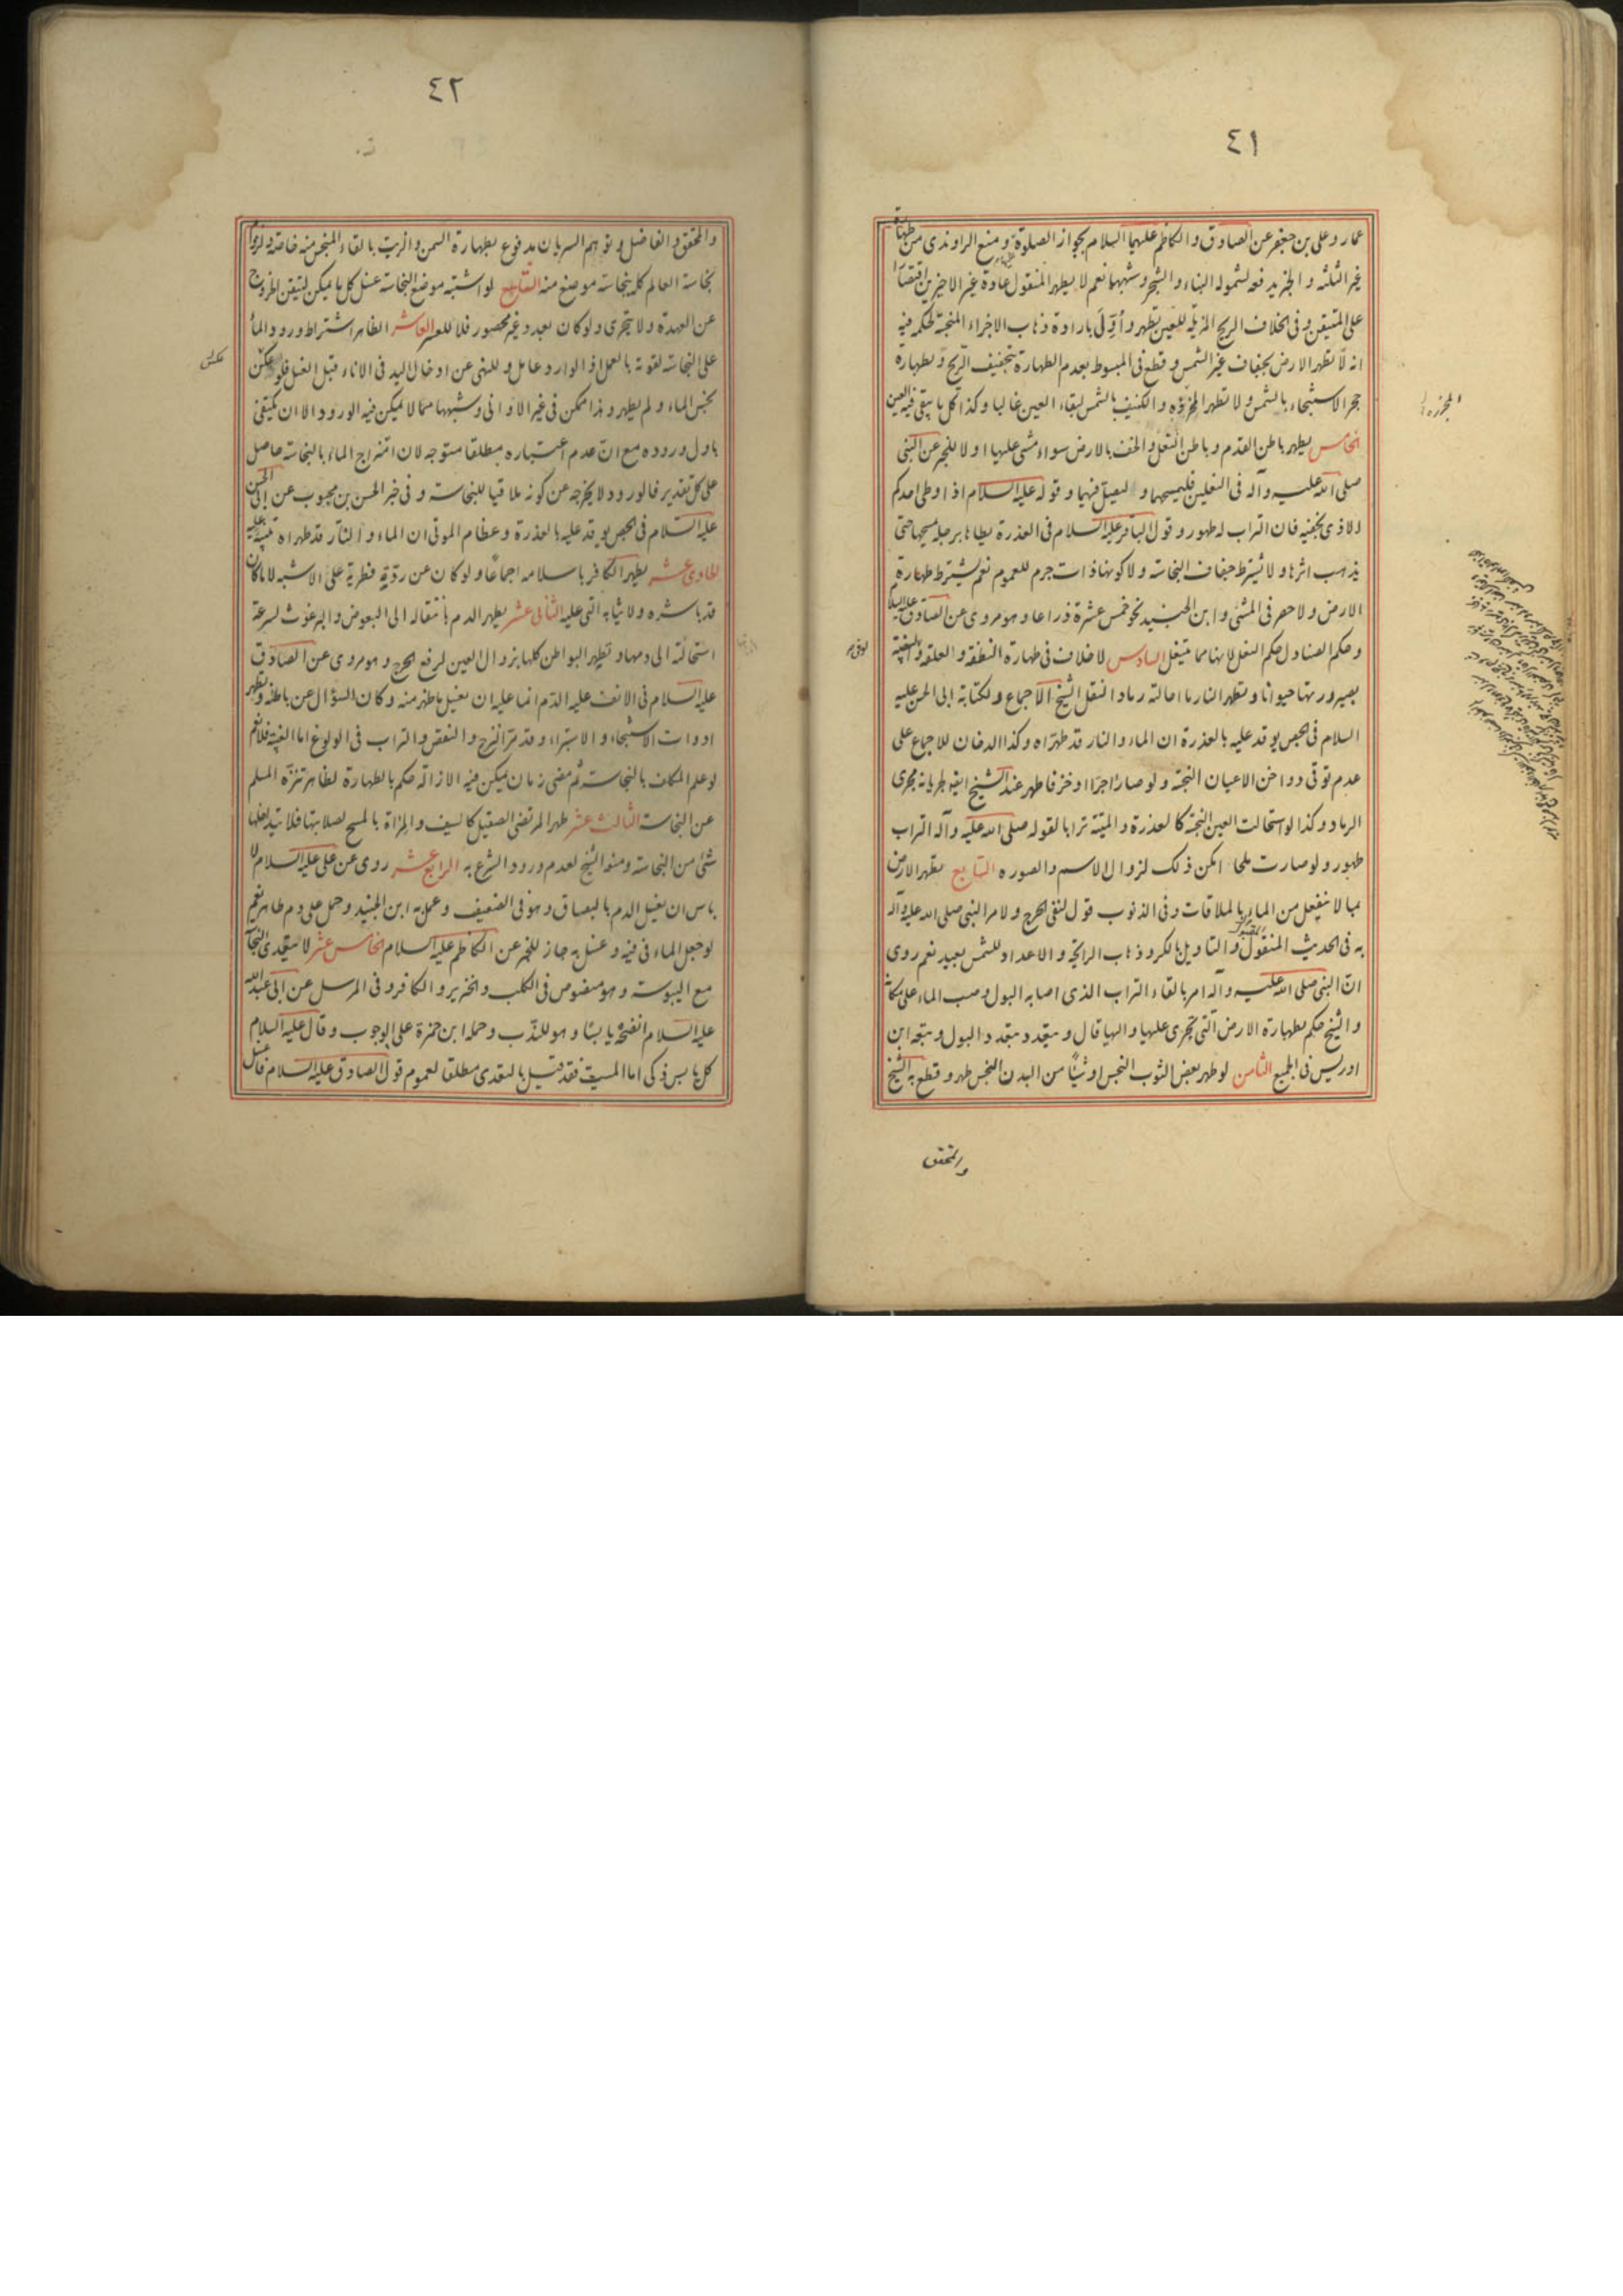 ٤١
عمار وعلى بن جعفر عن الصادق والكاظم عليهما السلام بجواز الصلوة ومنع الراوندى من طهارة
غير الثلثة والجزيد فعه لشموله البناء والشجر وشبهها نعم لا يطهر المنقول عادة غير الاخيرين اقتصارا
على المتيقن وفى الخلاف الريح المزيلة للعين تطهر وأوّل بارادة ذهاب الاجزاء المنجسة لحكمه فيه
انه لا تطهر الارض بجفاف غير الشمس وقطع فى المبسوط بعدم الطهارة بتجفيف الريح وبطهارة
حجر الاستنجاء بالشمس ولا تطهر المجزرة والكنيف بالشمس لبقاء العين غالبا وكذا كل ما يبقى فيه العين
الخامس يطهر باطن القدم وباطن النعل والخف بالارض سواء مشى عليها او لا للخبر عن النبى
صلى الله عليه وآله فى النعلين فليمسحهما وليصل فيهما وقوله عليه السلام اذا وطى احدكم
الاذى بخفيه فان التراب له طهور وقول الباقر عليه السلام فى العذرة يطاها برجله يمسحها حتى
يذهب اثرها ولا يشترط جفاف النجاسة ولا كونها ذات جرم للعموم نعم يشترط طهارة
الارض ولا حصر فى المشى وابن الجنيد نحو خمس عشرة ذراعا وهو مروى عن الصادق عليه السلام
وحكم الصنادل حكم النعل لانها مما ينتعل السادس لا خلاف فى طهارة النطفة والعلقة والمضغة
بصيرورتها حيوانا وتطهر النار ما احالته رمادا لنقل الشيخ الاجماع ولكتابة ابى الحسن عليه
السلام فى الجص يوقد عليه بالعذرة ان الماء والنار قد طهراه وكذا الدخان للاجماع على
عدم توقى دواخن الاعيان النجسة ولو صار اجرا او خزفا طهر عند الشيخ ايضا لجريانه مجرى
الرماد وكذا لو استحالت العين النجسة كالعذرة والميتة ترابا لقوله صلى الله عليه وآله التراب
طهور ولو صارت ملحا امكن ذلك لزوال الاسم والصوره السابع تطهر الارض
بما لا ينفعل من الماء بالملاقات وفى الذنوب قول لنفى الحرج ولامر النبى صلى الله عليه وآله
به فى الحديث المنقول والتاويل بالكر وذهاب الرائحة والاعداد للشمس بعيد نعم روى
ان النبى صلى الله عليه وآله امر بالقاء التراب الذى اصابه البول وصب الماء على مكانه
والشيخ حكم بطهارة الارض التى تجرى عليها واليها قال ويتعدد بتعدد البول وتبعه ابن
ادريس فى الجميع الثامن لو طهر بعض الثوب النجس او شيئا من البدن النجس طهر وقطع به الشيخ
والمحقق
المجزرة
٤٢
والمحقق والفاضل وتوهم السريان مدفوع بطهارة السمن والزيت بالقاء المنجس منه خاصة ولزوم
نجاسة العالم كله بنجاسة موضع منه التاسع لو اشتبه موضع النجاسة غسل كل ما يمكن ليتيقن الخروج
عن العهدة ولا يتحرى ولو كان بعدد غير محصور فلا للعسر العاشر الظاهر اشتراط ورود الماء
على النجاسة لقوته بالعمل اذ الوارد عامل وللنهى عن ادخال اليد فى الاناء قبل الغسل فلو عكس
نجس الماء ولم يطهر وهذا ممكن فى غير الاوانى وشبهها مما لا يمكن فيه الورود الا ان يكتفى
باول وروده مع ان عدم اعتباره مطلقا متوجه لان امتزاج الماء بالنجاسة حاصل
على كل تقدير فالورود لا يخرجه عن كونه ملاقيا للنجاسة وفى خبر الحسن بن محبوب عن ابى الحسن
عليه السلام فى الجص يوقد عليه بالعذرة وعظام الموتى ان الماء والنار قد طهراه تنبيه عليه
الحادى عشر يطهر الكافر باسلامه اجماعا ولو كان عن ردة فطرية على الاشبه لا ما كان
قد باشره ولا ثيابه التى عليه الثانى عشر يطهر الدم بانتقاله الى البعوض والبرغوث لسرعة
استحالته الى دمها وتطهر البواطن كلها بزوال العين لرفع الحرج وهو مروى عن الصادق
عليه السلام فى الانف عليه الدم انما عليه ان يغسل ما ظهر منه وكان السؤال عن باطنه وتطهر
ادوات الاستنجاء والاستبراء وقد مر النزح والنقص والتراب فى الولوغ اما الغيبة فلا نعم
لو علم المكلف بالنجاسة ثم مضى زمان يمكن فيه الازالة حكم بالطهارة لظاهر تنزه المسلم
عن النجاسة الثالث عشر طهر المرتضى الصقيل كالسيف والمرآة بالمسح لصلابتها فلا يتداخلها
شئ من النجاسة ومنعه الشيخ لعدم ورود الشرع به الرابع عشر روى عن على عليه السلام لا
باس ان يغسل الدم بالبصاق وهو فى الضعيف وعمل به ابن الجنيد وحمل على دم طاهر نعم
لو جعل الماء فى فيه وغسل به جاز للخبر عن الكاظم عليه السلام الخامس عشر لا يتعدى النجاسة
مع اليبوسة وهو منصوص فى الكلب والخنزير والكافر وفى المرسل عن ابى عبد الله
عليه السلام انضحه يابسا وهو للندب وحمله ابن حمزة على الوجوب وقال عليه السلام
كل يابس ذكى اما الميت فقد قيل بالتعدى مطلقا لعموم قول الصادق عليه السلام فاغسل
عكس